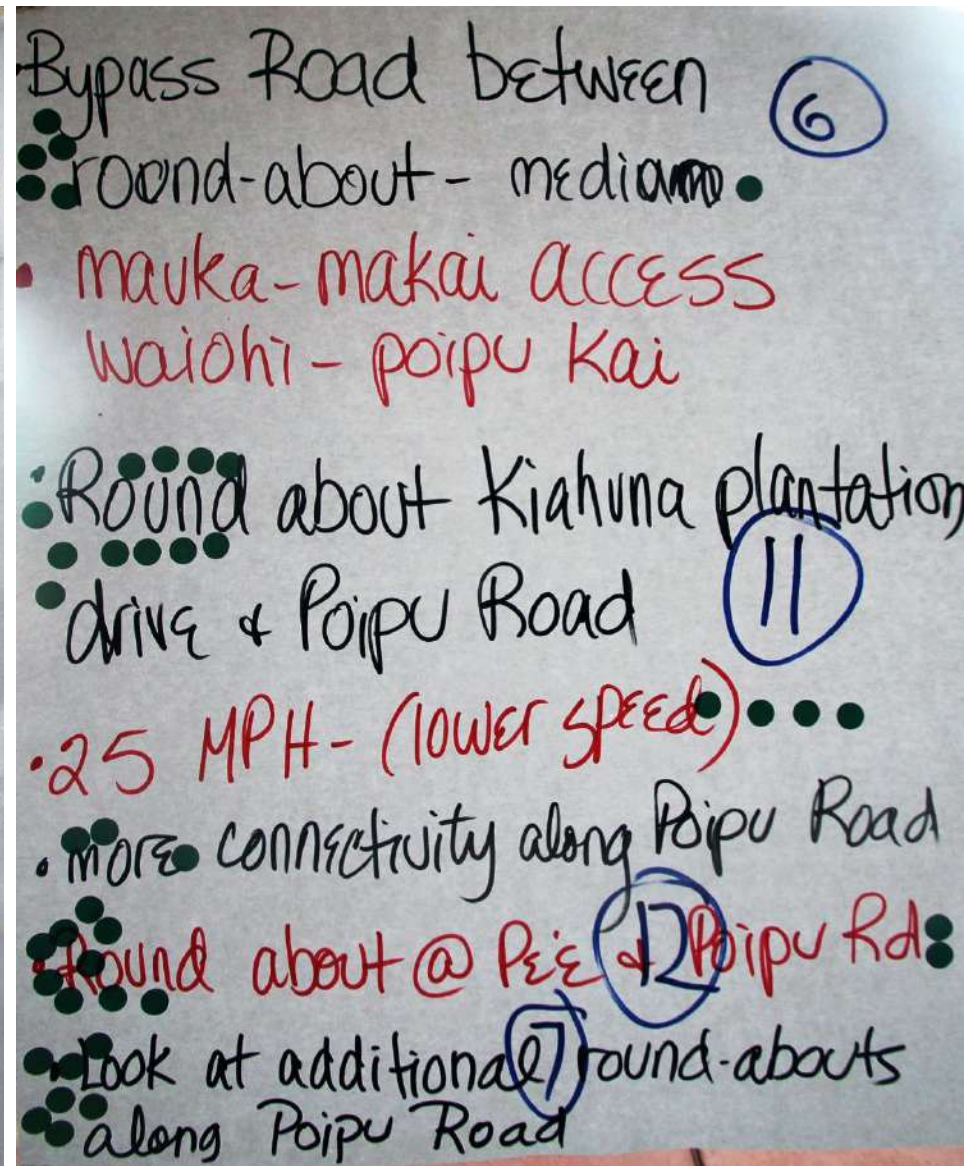 Bypass Road between
6
round-about - median
• mauka - makai access
waiohi - poipu Kai
• Round about Kiahuna plantation
drive & Poipu Road
11
• 25 MPH - (lower speed)
• more connectivity along Poipu Road
• Round about @ Pe'e & Poipu Rd
12
• Look at additional round-abouts
7
along Poipu Road